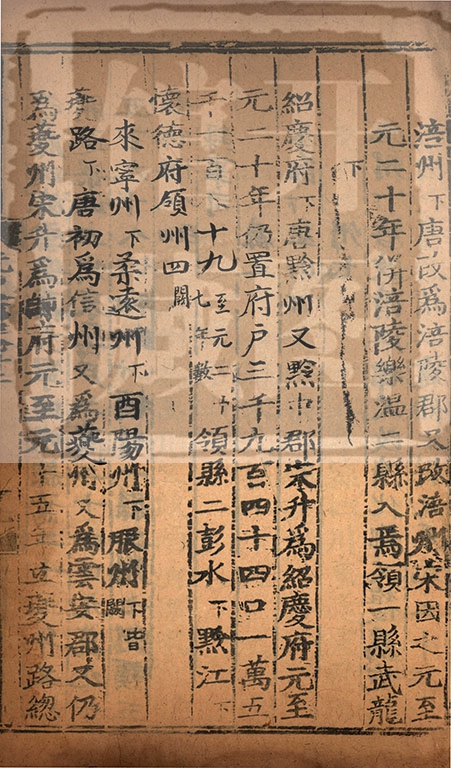 涪州下唐改爲涪陵郡又改涪州宋因之元至
元二十年併涪陵樂温二縣入焉領一縣武龍
下
紹慶府下唐黔州又黔中郡宋升爲紹慶府元至
元二十年仍置府户三千九百四十四口一萬五
千一百八十九至元二十七年數領縣二彭水下黔江下
懷德府領州四闕
來寧州下柔遠州下酉陽州下服州下皆闕
夔路下唐初爲信州又爲夔州又爲雲安郡又仍
爲夔州宋升爲帥府元至元十五年立夔州路緫